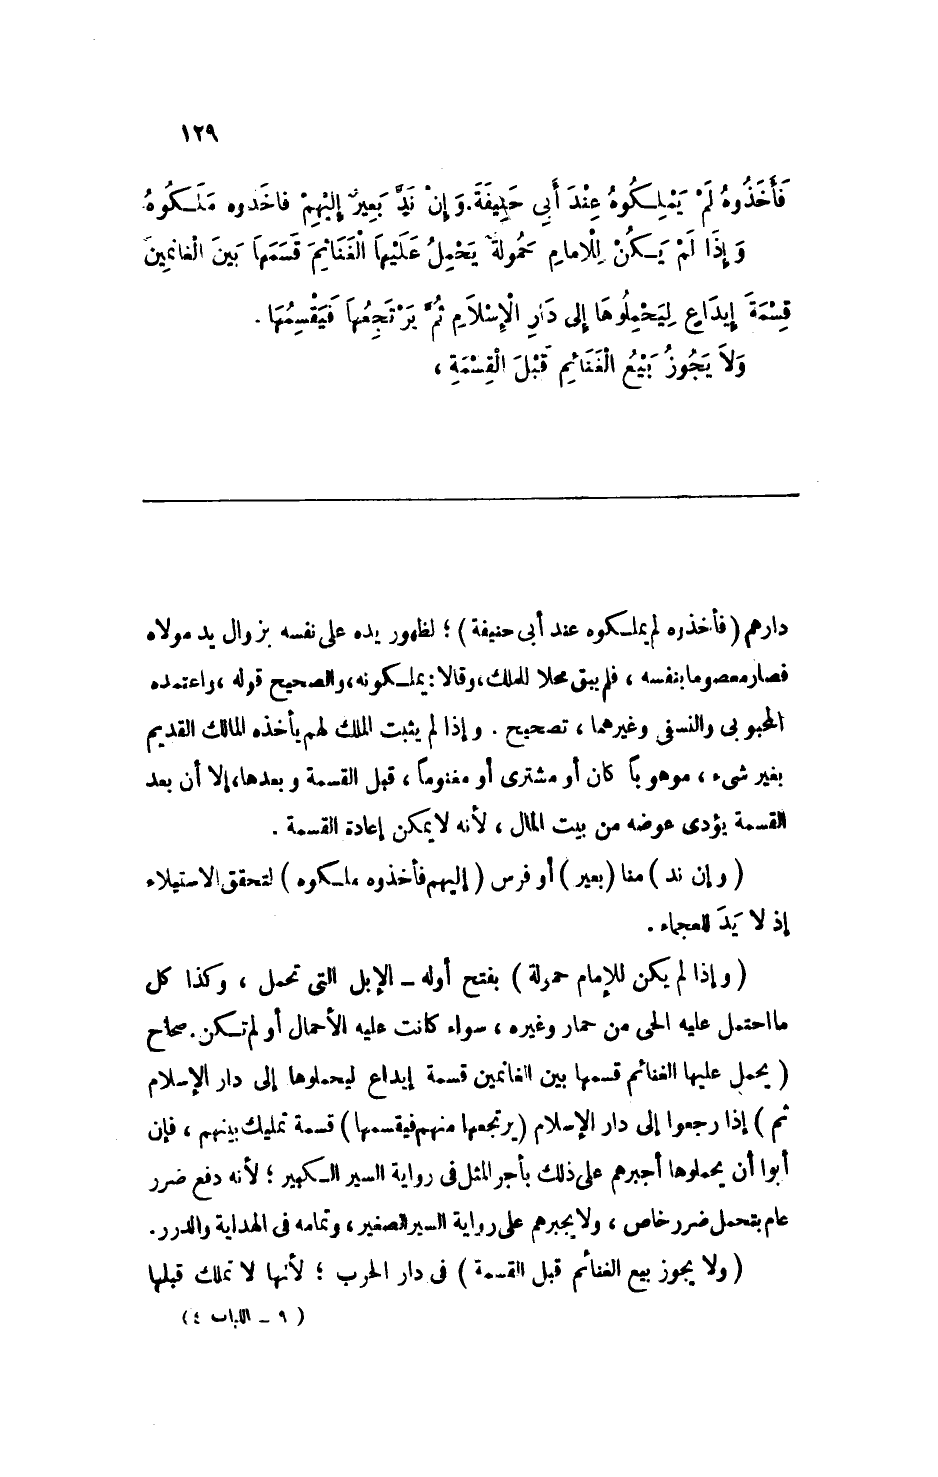 ١٢٩
فَأَخَذُوهُ لَمْ يَمْلِكُوهُ عِنْدَ أَبِى حَنِيفَةَ. وَإِنْ نَدَّ بَعِيرٌ إِلَيْهِمْ فَأَخَذُوه مَلَكُوهُ
وَإِذَا لَمْ يَكُنْ لِلْإمامِ حَمُولَةٌ يَحْمِلُ عَلَيْهَا الْغَنَائِمَ قَسَمَهَا بَينَ الْغانِمِينَ
قِسْمَةَ إِيدَاعٍ لِيَحْمِلُوهَا إِلى دَارِ الْإِسْلَامِ ثُمَّ يَرْتَجِعُهاَ فَيَقْسِمُهَا .
وَلاَ يَجُوزُ بَيْعُ الْغَنَائِمِ قَبْلَ الْقِسْمَةِ ،
دارهم (فأخذوه لم يملكوه عند أبى حنيفة) ؛ لظهور يده على نفسه بزوال يد مولاه
فصار معصوما بنفسه ، فلم يبق محلا للملك، وقالا: يملكونه، والصحيح قوله ، واعتمده
المحبوبى والنسفى وغيرهما ، تصحيح . وإذا لم يثبت الملك لهم يأخذه المالك القديم
بغير شىء ، موهوباً كان أو مشترى أو مغنوماً ، قبل القسمة وبعدها، إلا أن بعد
القسمة يؤدى عوضه من بيت المال ، لأنه لا يمكن إعادة القسمة .
(وإن ند) منا (بعير) أو فرس (إليهم فأخذوه ملكوه) لتحقق الاستيلاء
إذ لا يَدَ للعجماء .
(وإذا لم يكن للإمام حمولة) بفتح أوله – الإبل التى تحمل ، وكذا كل
ما احتمل عليه الحى من حمار وغيره ، سواء كانت عليه الأحمال أو لم تكن. صحاح
(يحمل عليها الغنائم قسمها بين الغانمين قسمة إيداع ليحملوها إلى دار الإسلام
ثم) إذا رجعوا إلى دار الإسلام (يرتجعها منهم فيقسمها) قسمة تمليك بينهم ، فإن
أبوا أن يحملوها أجبرهم على ذلك بأجر المثل فى رواية السير الكبير ؛ لأنه دفع ضرر
عام بتحمل ضرر خاص ، ولا يجبرهم على رواية السير الصغير ، وتمامه فى الهداية والدرر.
(ولا يجوز بيع الغنائم قبل القسمة) فى دار الحرب ؛ لأنها لا تملك قبلها
(٩ – اللباب ٤)